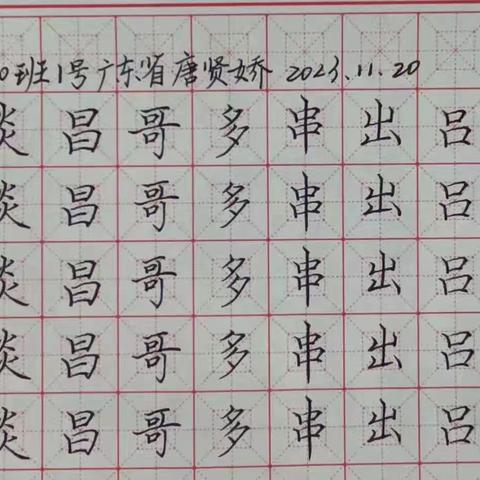 0班1号广东省唐贤娇 2023.11.20
炎昌哥多串出吕
炎昌哥多串出吕
炎昌哥多串出吕
炎昌哥多串出吕
炎昌哥多串出吕